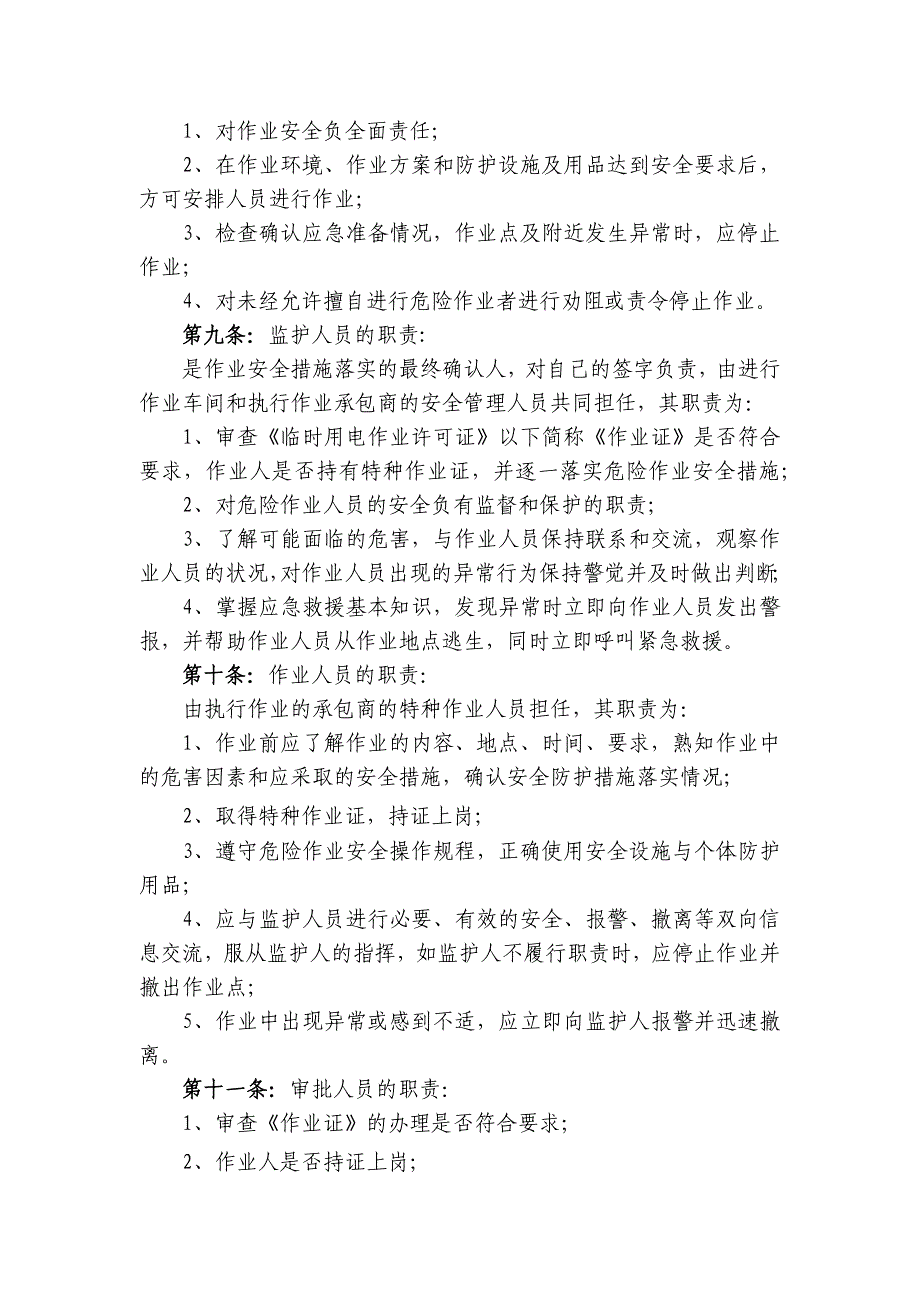 1、对作业安全负全面责任；
2、在作业环境、作业方案和防护设施及用品达到安全要求后，
方可安排人员进行作业；
3、检查确认应急准备情况，作业点及附近发生异常时，应停止
作业；
4、对未经允许擅自进行危险作业者进行劝阻或责令停止作业。
第九条：监护人员的职责：
是作业安全措施落实的最终确认人，对自己的签字负责，由进行
作业车间和执行作业承包商的安全管理人员共同担任，其职责为：
1、审查《临时用电作业许可证》以下简称《作业证》是否符合
要求，作业人是否持有特种作业证，并逐一落实危险作业安全措施；
2、对危险作业人员的安全负有监督和保护的职责；
3、了解可能面临的危害，与作业人员保持联系和交流，观察作
业人员的状况，对作业人员出现的异常行为保持警觉并及时做出判断；
4、掌握应急救援基本知识，发现异常时立即向作业人员发出警
报，并帮助作业人员从作业地点逃生，同时立即呼叫紧急救援。
第十条：作业人员的职责：
由执行作业的承包商的特种作业人员担任，其职责为：
1、作业前应了解作业的内容、地点、时间、要求，熟知作业中
的危害因素和应采取的安全措施，确认安全防护措施落实情况；
2、取得特种作业证，持证上岗；
3、遵守危险作业安全操作规程，正确使用安全设施与个体防护
用品；
4、应与监护人员进行必要、有效的安全、报警、撤离等双向信
息交流，服从监护人的指挥，如监护人不履行职责时，应停止作业并
撤出作业点；
5、作业中出现异常或感到不适，应立即向监护人报警并迅速撤
离。
第十一条：审批人员的职责：
1、审查《作业证》的办理是否符合要求；
2、作业人是否持证上岗；